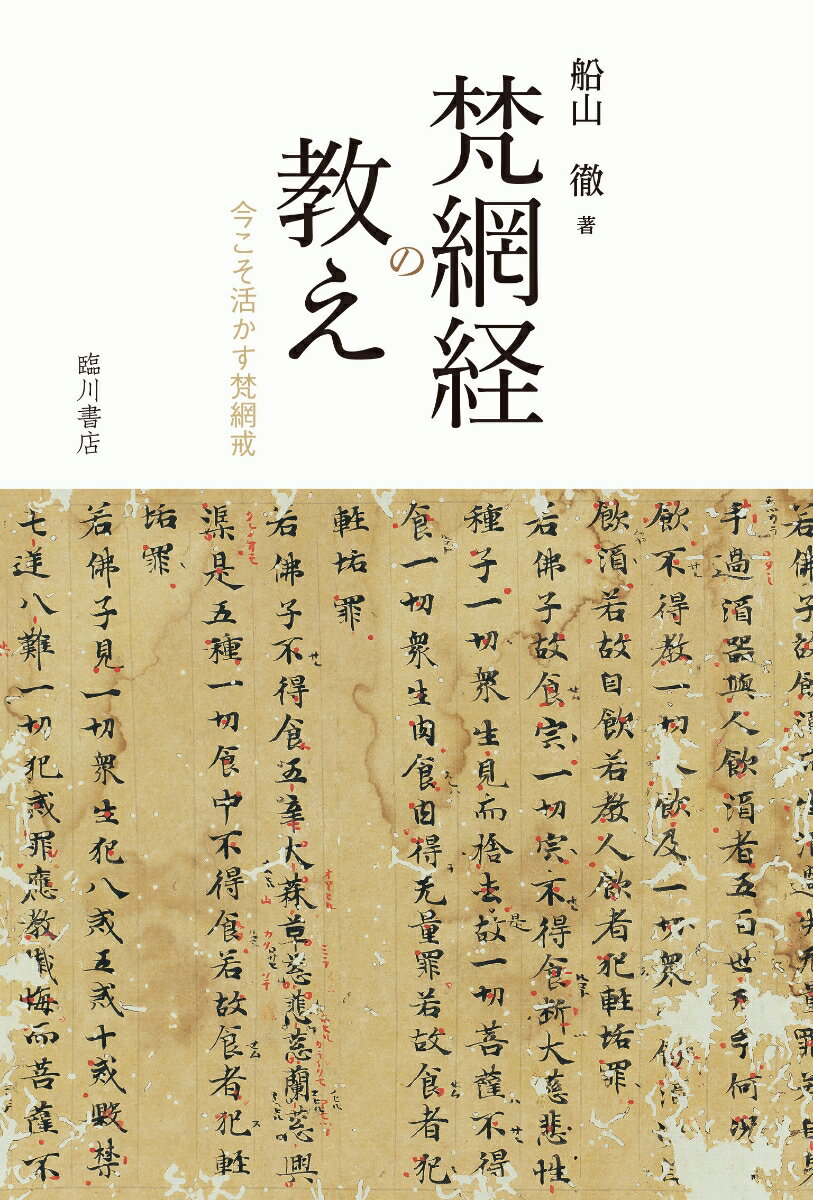 船山 徹 著
梵網経
の
教え
今こそ活かす梵網戒
臨川書店
若佛子故飲酒
手過酒器與人飲酒者五百世无手何況
飲不得教一切人飲及一切衆
飲酒若故自飲若教人飲者犯軽垢罪
若佛子故食宍一切宍不得食断大慈悲性
種子一切衆生見而捨去是故一切菩薩不得
食一切衆生肉食肉得无量罪若故食者犯
軽垢罪
若佛子不得食五辛大蒜草葱慈葱蘭葱興
渠是五種一切食中不得食若故食者犯軽
垢罪
若佛子見一切衆生犯八戒五戒十戒毀禁
七逆八難一切犯戒罪應教懺悔而菩薩不